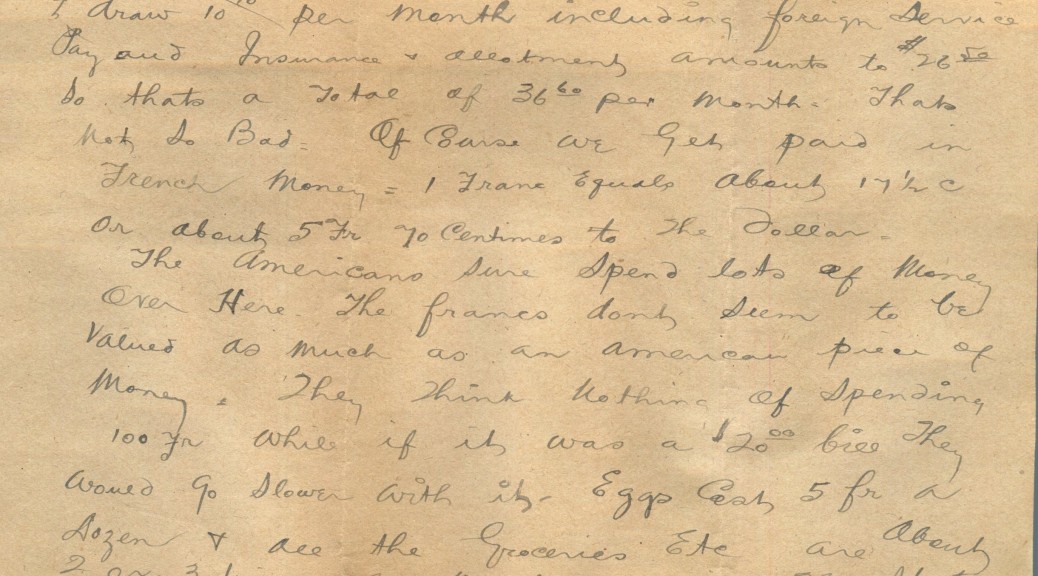 I draw 10 per month including foreign Service
Pay and Insurance & allotment amounts to $26 50
So thats a Total of 36 60 per Month. Thats
Not So Bad = Of Course we Get paid in
French Money = 1 Franc Equals About 17 1/2 c
Or about 5 Fr 70 Centimes to The Dollar =
The Americans Sure Spend lots of Money
Over Here. The francs dont Seem to be
Valued as Much as an American piece of
Money = They Think Nothing Of Spending
100 Fr While if it was a $20 00 bill They
Would Go Slower With it - Eggs Cost 5 fr a
Dozen & all the Groceries Etc are About
2 or 3